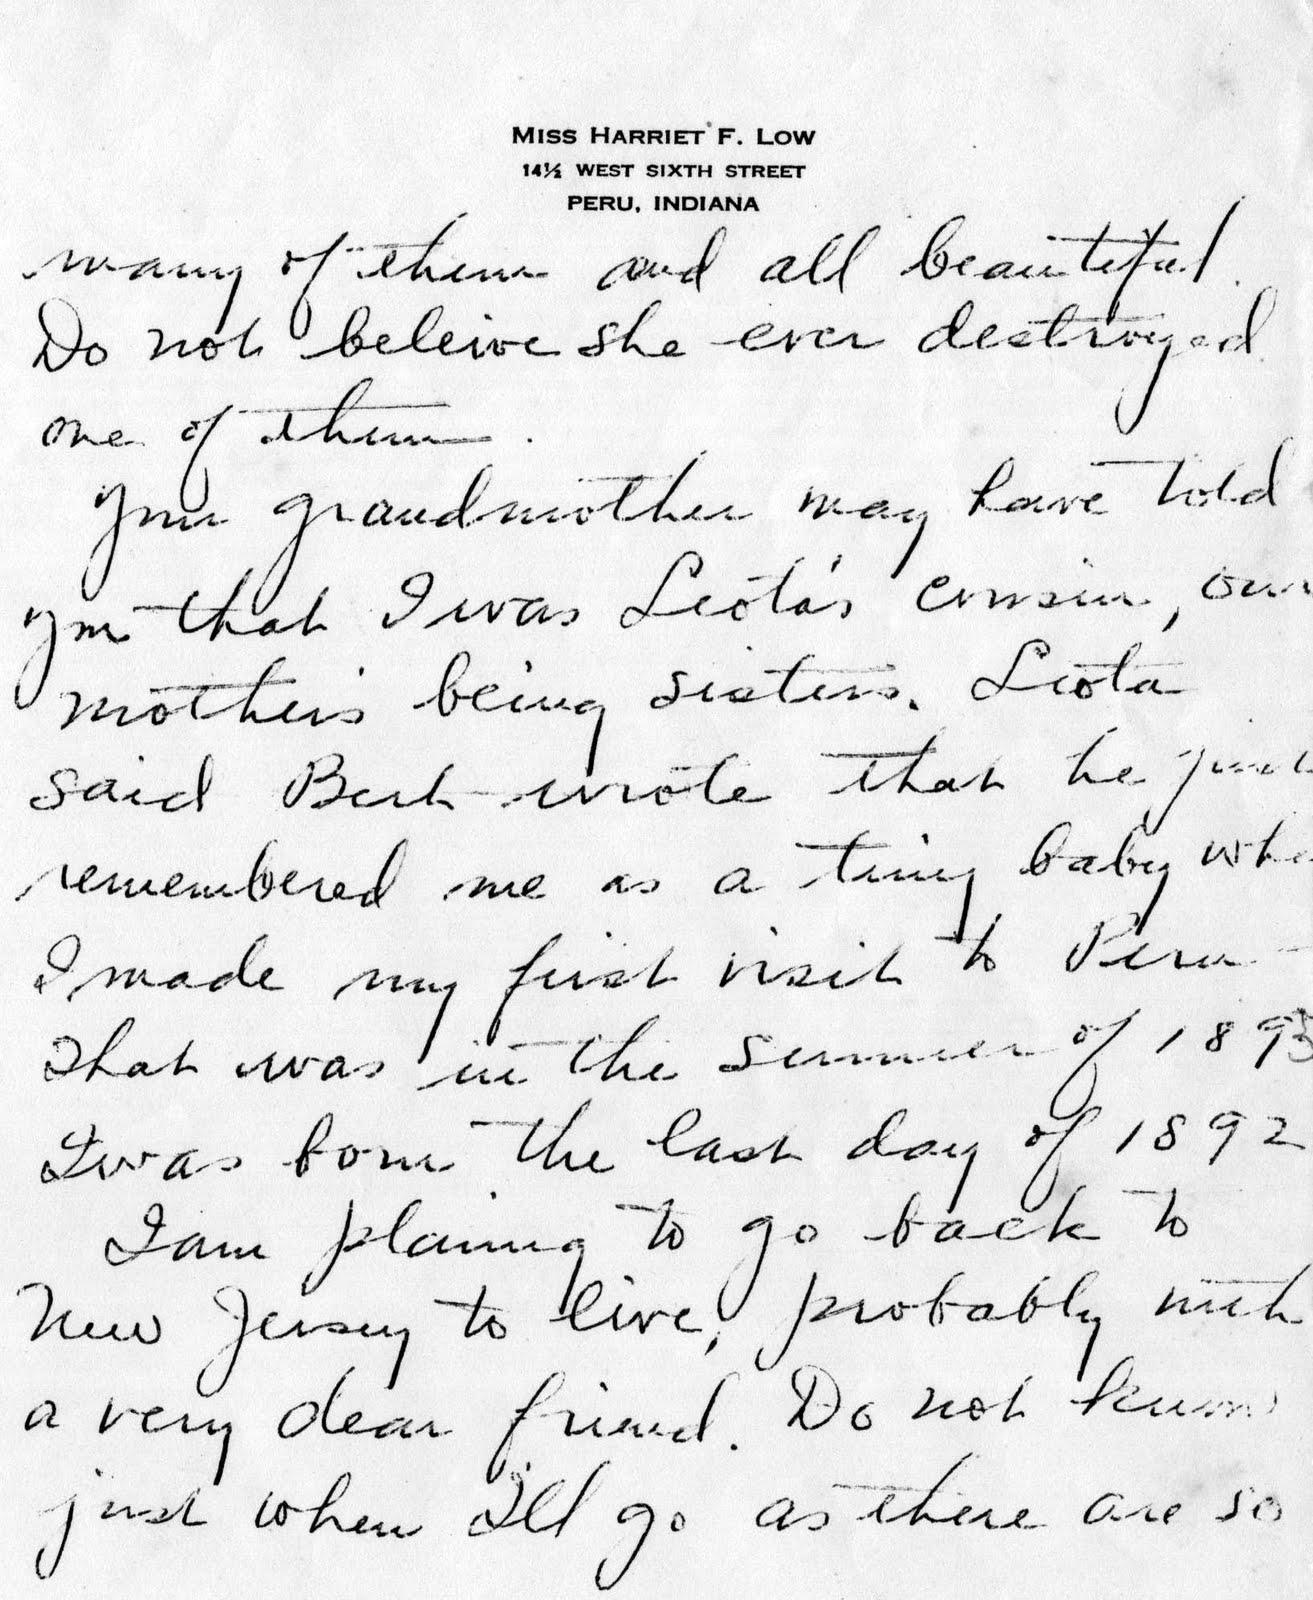 MISS HARRIET F. LOW
14½ WEST SIXTH STREET
PERU, INDIANA
many of them and all beautiful.
Do not beleive she ever destroyed
one of them.
Your grandmother may have told
you that I was Leota's cousin, our
mothers being sisters. Leota
said Bert wrote that he just
remembered me as a tiny baby whe
I made my first visit to Peru -
That was in the summer of 1893
I was born the last day of 1892
I am planing to go back to
New Jersey to live, probably with
a very dear friend. Do not know
just when I'll go as there are so